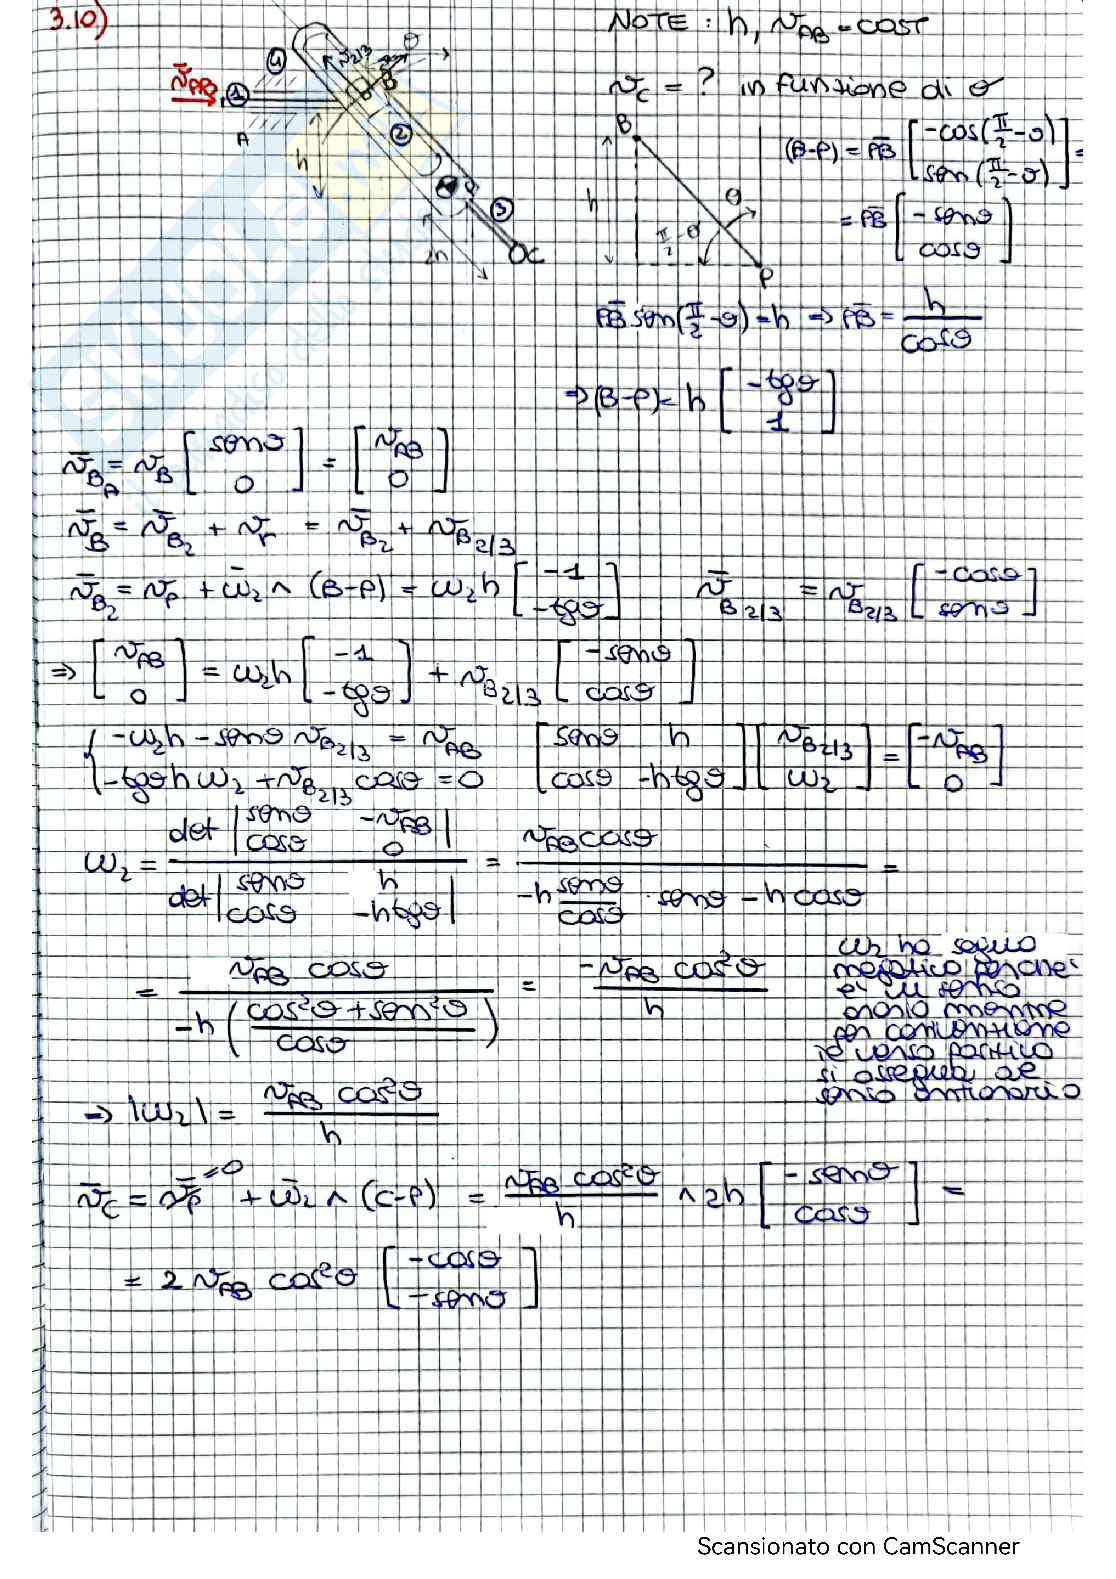 3.10)
NOTE : h, v_AB = cost
v_C = ? in funzione di θ
v̄_AB
1
4
A
h
2
3
2h
C
B
h
θ
π/2 - θ
P
(B-P) = PB [-cos(π/2-θ) ; sen(π/2-θ)] =
= PB [-senθ ; cosθ]
PB sen(π/2-θ) = h ⇒ PB = h/cosθ
⇒ (B-P) = h [-tgθ ; 1]
v̄_B_A = v_B [senθ ; 0] = [v_AB ; 0]
v̄_B = v̄_B2 + v̄_r = v̄_B2 + v_B2/3
v̄_B2 = v_P + ω̄2 ∧ (B-P) = ω2h [-1 ; -tgθ] v̄_B2/3 = v_B2/3 [-cosθ ; senθ]
⇒ [v_AB ; 0] = ω2h [-1 ; -tgθ] + v_B2/3 [-senθ ; cosθ]
{ -ω2h - senθ v_B2/3 = v_AB
-tgθ h ω2 + v_B2/3 cosθ = 0
[senθ h ; cosθ -htgθ] [v_B2/3 ; ω2] = [-v_AB ; 0]
ω2 = det |senθ -v_AB ; cosθ 0| / det |senθ h ; cosθ -htgθ| = v_AB cosθ / (-h senθ/cosθ · senθ - h cosθ) =
= v_AB cosθ / (-h ((cos²θ + sen²θ)/cosθ)) = -v_AB cos²θ / h
ω2 ha segno
negativo perche'
e' in senso
orario mentre
per convenzione
il verso positivo
si assegna al
senso antiorario
⇒ |ω2| = v_AB cos²θ / h
v̄_C = v̄_P =0 + ω̄2 ∧ (C-P) = v_AB cos²θ / h ∧ 2h [-senθ ; cosθ] =
= 2 v_AB cos²θ [-cosθ ; -senθ]
Scansionato con CamScanner